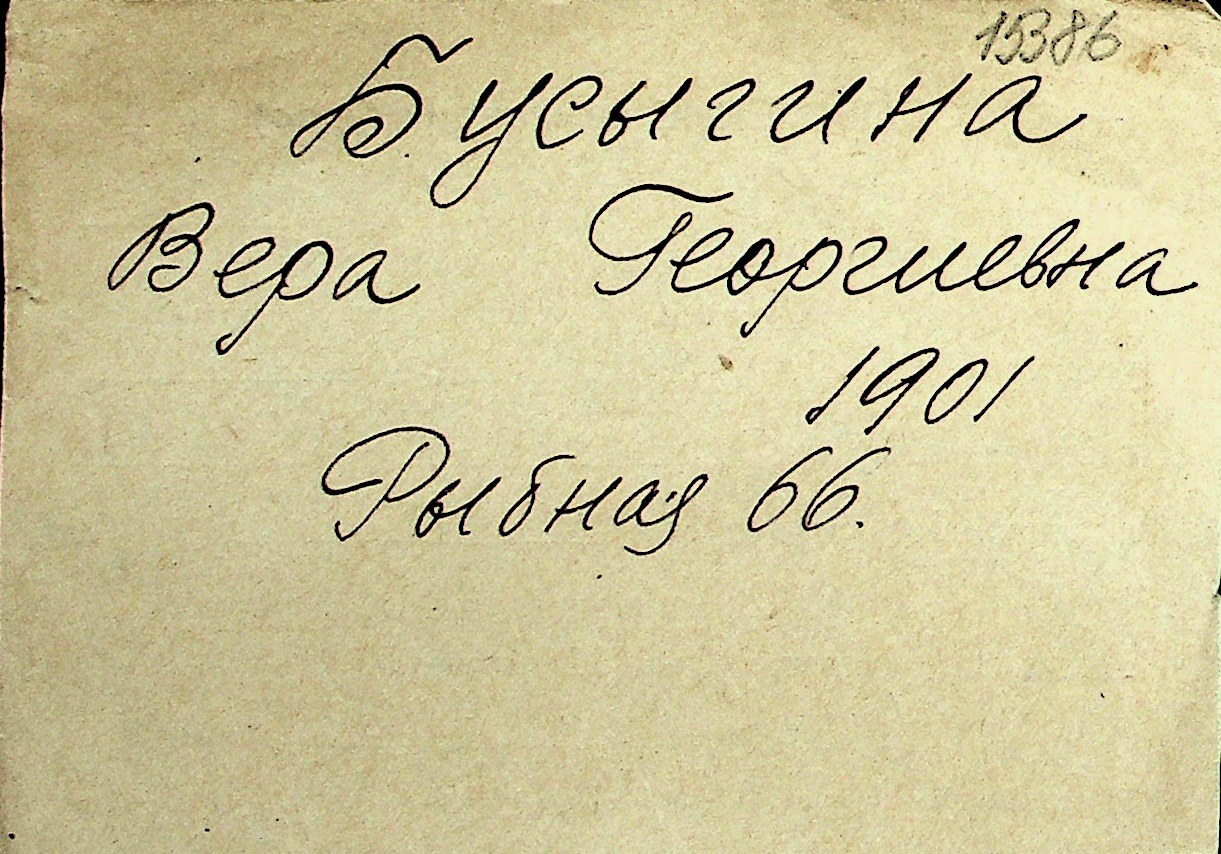 15386
Бусыгина
Вера Георгиевна
1901
Рыбная 66.